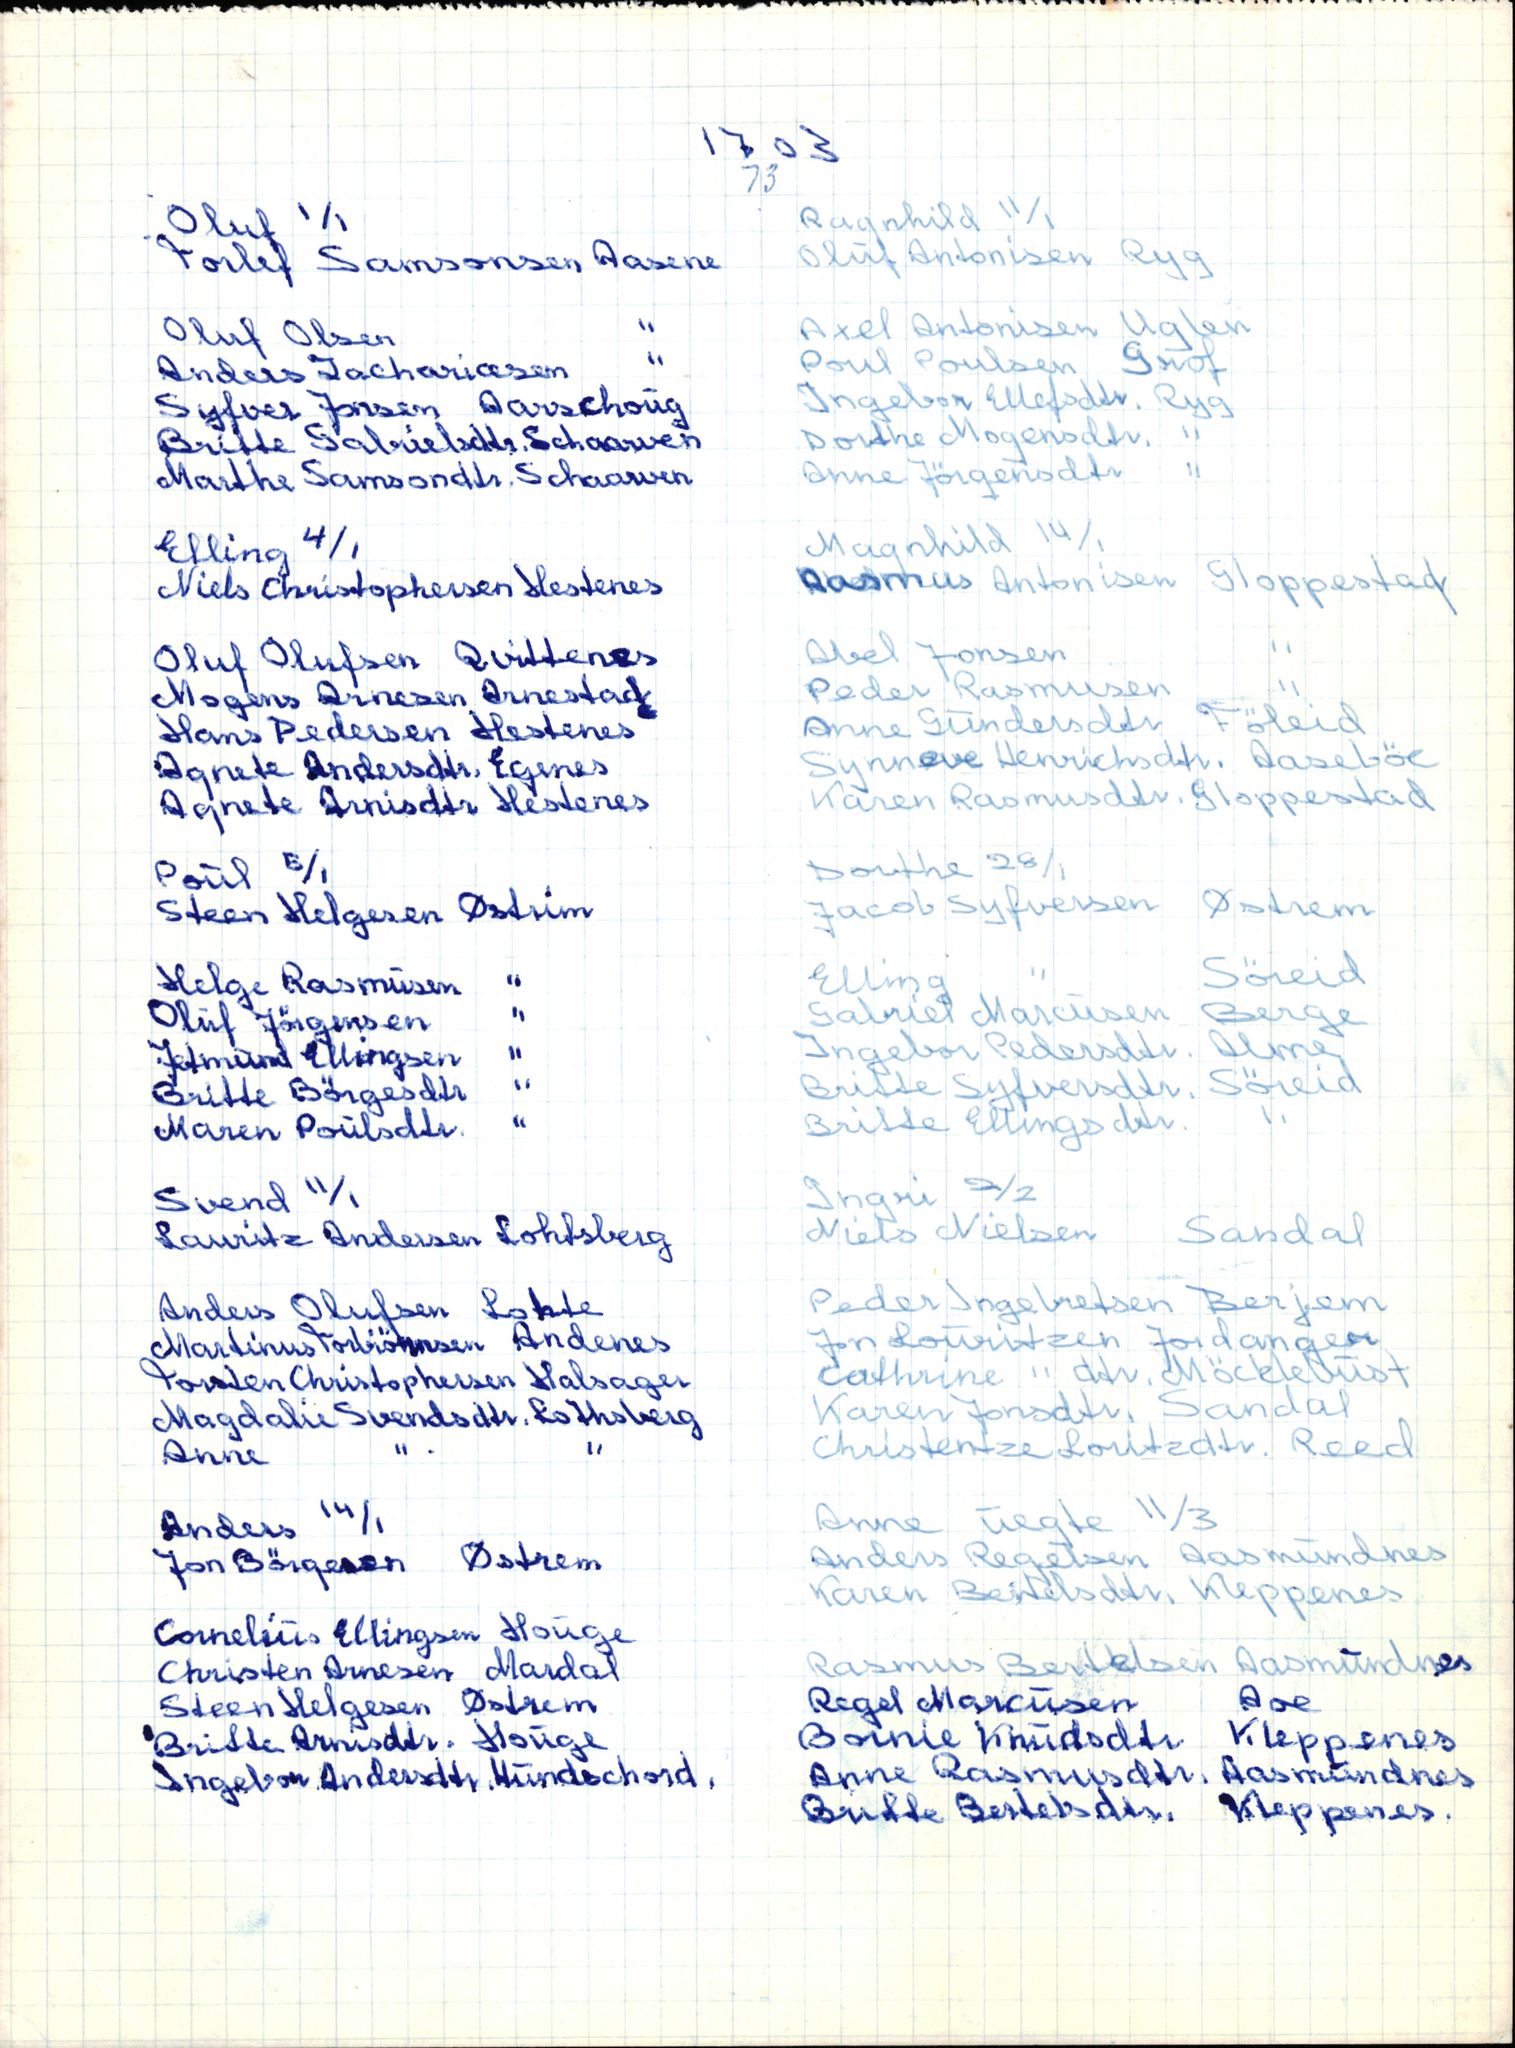 1703
73
Oluf 1/1
Torlef Samsonsen Aasene
Oluf Olsen "
Anders Zachariæsen "
Syfver Jonsen Aarschoŭg
Britte Gabrielsdtr. Schaarven
Marthe Samsondtr. Schaarven
Elling 4/1
Niels Christophersen Hestenes
Oluf Olufsen Qvittenes
Mogens Arnesen Arnestad
Hans Pedersen Hestenes
Agnete Andersdtr. Egenes
Agnete Arnisdtr Hestenes
Poŭl 5/1
Steen Helgesen Østrim
Helge Rasmŭsen "
Olŭf Jörgensen "
Jetmŭnd Ellingsen "
Britte Börgesdtr "
Maren Poŭlsdtr. "
Svend 11/1
Lauritz Andersen Lohtsberg
Anders Olufsen Lohte
Martinus Torbiörnsen Andenes
Torsten Christophersen Halsager
Magdalie Svendsdtr. Lothsberg
Anne " "
Anders 14/1
Jon Börgesen Østrem
Cornelius Ellingsen Hoŭge
Christen Arnesen Mardal
Steen Helgesen Østrem
Britte Arnisdtr. Hoŭge
Ingebor Andersdtr. Hŭndschord.
Ragnhild 11/1
Olŭf Antonisen Ryg
Axel Antonisen Uglen
Poul Poulsen Gröf
Ingebor Ellefsdtr. Ryg
Dorthe Mogensdtr. "
Anne Jörgensdtr "
Magnhild 14/1
Rasmus Antonisen Gloppestad
Abel Jonsen "
Peder Rasmusen "
Anne Gŭndersdtr. Föleid
Synneve Henrichsdtr. Aaseböe
Karen Rasmusdtr. Gloppestad
Dorthe 28/1
Jacob Syfversen Østrem
Elling " Söreid
Gabriel Marcŭsen Berge
Ingebor Pedersdtr. Alme
Britte Syfversdtr. Söreid
Britte Ellingsdtr. "
Ingri 2/2
Niels Nielsen Sandal
Peder Ingebretsen Berjem
Jon Loŭritzen Jordanger
Cathrine " dtr. Möcklebŭst
Karen Jonsdtr. Sandal
Christentze Loritzdtr. Reed
Anne ŭegte 11/3
Anders Regelsen Aasmŭndnes
Karen Bertelsdtr. Kleppenes
Rasmus Bertelsen Aasmŭndnes
Regel Marcŭsen Aoe
Bornie Knŭdsdtr Kleppenes
Anne Rasmusdtr. Aasmŭndnes
Britte Bertelsdtr. Kleppenes.